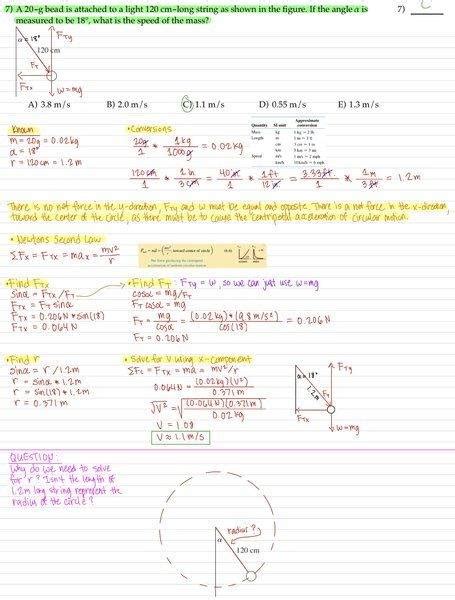 7) A 20-g bead is attached to a light 120 cm-long string as shown in the figure. If the angle α is
measured to be 18°, what is the speed of the mass?
7)
α = 18°
FTy
120 cm
FT
FTx
w=mg
A) 3.8 m/s B) 2.0 m/s C) 1.1 m/s D) 0.55 m/s E) 1.3 m/s
Known
m = 20g = 0.02kg
α = 18°
r = 120cm = 1.2m
• Conversions
20g/1 * 1kg/1000g = 0.02kg
Quantity SI unit Approximate conversion
Mass kg 1 kg ≈ 2 lb
Length m 1 m ≈ 3 ft
cm 3 cm ≈ 1 in
km 5 km ≈ 3 mi
Speed m/s 1 m/s ≈ 2 mph
km/h 10 km/h ≈ 6 mph
120cm/1 * 1in/3cm = 40in/1 * 1ft/12in = 3.33ft/1 * 1m/3ft = 1.2m
There is no net force in the y-direction, FTy and w must be equal and opposite. There is a net force in the x-direction,
toward the center of the circle, as there must be to cause the centripetal acceleration of circular motion.
• Newtons Second Law
ΣFx = FTx = max = mv²/r
Fnet = ma = (mv²/r, toward center of circle) (6.6)
Net force producing the centripetal
acceleration of uniform circular motion
• Find FTx
sinα = FTx/FT
FTx = FT sinα
FTx = 0.206N * sin(18)
FTx = 0.064N
• Find FT : FTy = w, so we can just use w=mg
cosα = mg/FT
FT cosα = mg
FT = mg/cosα = (0.02kg)*(9.8m/s²)/cos(18) = 0.206N
FT = 0.206N
• Find r
sinα = r/1.2m
r = sinα * 1.2m
r = sin(18) * 1.2m
r = 0.371m
• Solve for v using x-component
ΣFx = FTx = ma = mv²/r
0.064N = (0.02kg)(v²)/0.371m
√v² = √(0.064N)(0.371m)/0.02kg
v = 1.09
v ≈ 1.1m/s
α = 18°
FTy
1.2m
FT
FTx
w=mg
QUESTION:
Why do we need to solve
for r? Isn't the length of
1.2m long string represent the
radius of the circle?
radius?
α
120 cm